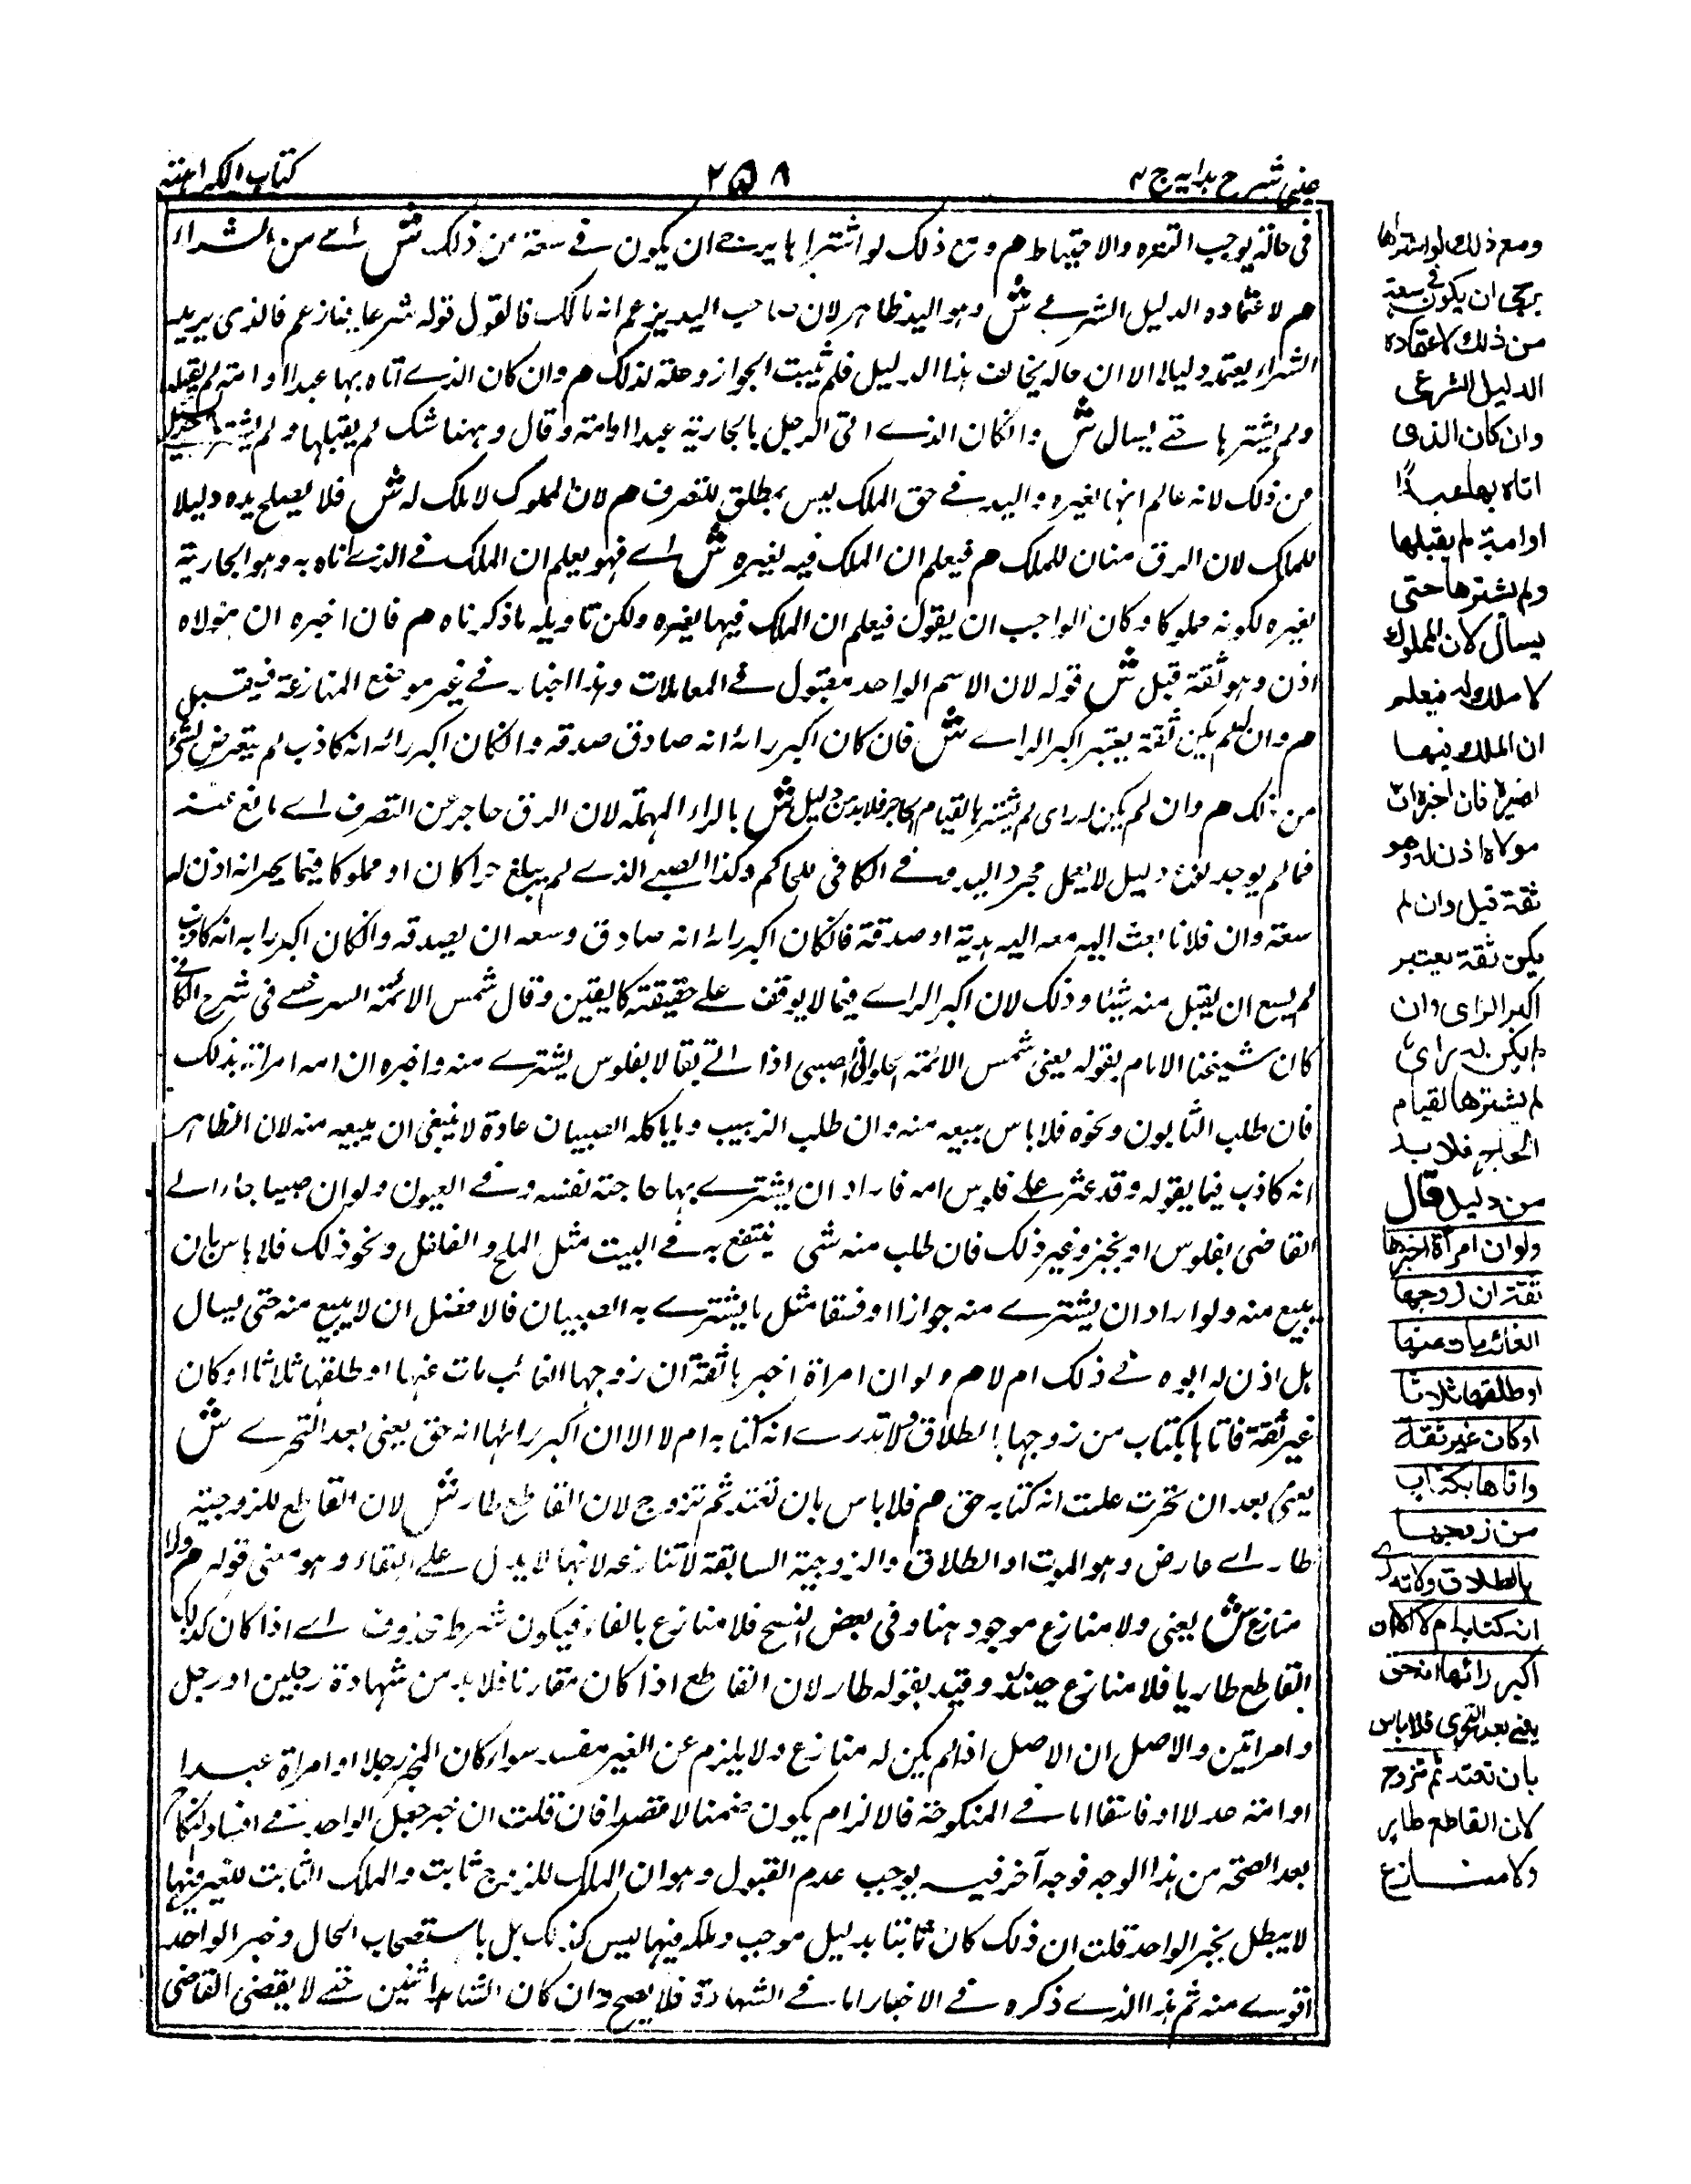 عینی شرح ہدایہ ج ٤
٢٥٨
كتاب الكراهته
فى حالة يوجب التنزه والاحتياط هم ومع ذلك لو اشتراها يرجے ان يكون فے سعة من ذلك ش اے من الشراء
هم لاعتماده الدليل الشرعے ش وهو اليد ظاهر لان صاحب اليد يزعم انه مالك فالقول قوله شرعا بمنازعهم فالذى يريد
الشراء يعتمد دليلا الا ان حاله يخالف هذا الدليل فلم يثبت الجواز وحله لذلك هم وان كان الذے اتاه بها عبدا او امة لم يقبلها
ولم يشترها حتے يسال ش وانكان الذے اتى الرجل بالجارية عبدا او امة وقال وهبنا شك لم يقبلها ولم يشتر
من ذلك لانه عالم انها لغيره واليد فے حق الملك ليس بمطلق للتصرف هم لان المملوك لا ملك له ش فلا يصلح يده دليلا
للملك لان الرق مناف للملك هم فيعلم ان الملك فيه لغيره ش اے فهو يعلم ان الملك فے الذے اتاه به وهو الجارية
لغيره لكونه مملوكا وكان الواجب ان يقول فيعلم ان الملك فيها لغيره ولكن تاويله ما ذكرناه هم فان اخبره ان مولاه
اذن وهو ثقة قبل ش قوله لان الاسم الواحد مقبول فے المعاملات وهذا اخبار فے غير موضع المنازعة فيقبل
هم وان لم يكن ثقة يعتبر اكبر الراے ش فان كان اكبر رائه انه صادق صدقه وانكان اكبر رائه انه كاذب لم يتعرض لشئ
من ذلك هم وان لم يكن له راى لم يشترها لقيام الحاجر فلا بد من دليل ش بالراء المهملة لان الرق حاجر عن التصرف اے مانع عنه
فما لم يوجد نوع دليل لا يعمل مجرد اليد وفے الكافى للحاكم وكذا الصبے الذے لم يبلغ حرا كان او مملوكا فيما يخبر انه اذن له
سعة وان فلانا بعث اليه معه اليه هدية او صدقة فانكان اكبر رائه انه صادق وسعه ان يصدقه وانكان اكبر رايه انه كاذب
لم يسع ان يقبل منه شيئا وذلك لان اكبر الراے فيما لا يوقف علے حقيقته كاليقين وقال شمس الائمة السرخسے فى شرح الكافے
كان شيخنا الامام يقوله يعنى شمس الائمة الحلوانى الصبى اذا اتے بقالا بفلوس يشترے منه واخبره ان امه امرته بذلك
فان طلب الثابون ونحوه فلا باس ببيعه منه وان طلب الزبيب وما ياكله الصبيان عادة لا ينبغى ان يبيعه منه لان الظاهر
انه كاذب فيما يقوله وقد عثر علے فلوس امه فاراد ان يشترے بها حاجة نفسه وفے العيون ولو ان صبيا جاء الے
القاضى بفلوس او بخبز وغير ذلك فان طلب منه شى ينتفع به فے البيت مثل الملح والفلفل ونحو ذلك فلا باس بان
يبيع منه ولو اراد ان يشترے منه جوازا او فستقا مثل ما يشترے به الصبيان فالافضل ان لا يبيع منه حتى يسال
هل اذن له ابوه فے ذلك ام لا هم ولو ان امراة اخبرها ثقة ان زوجها الغائب مات عنها او طلقها ثلاثا او كان
غير ثقة فاتاها بكتاب من زوجها بالطلاق ولا تدرے انه كتابه ام لا الا ان اكبر رائها انه حق يعنى بعد التحرے ش
يعنى بعد ان تحرت علمت انه كتابه حق هم فلا باس بان تعتد ثم تتزوج لان القاطع طار ش لان القاطع للزوجية
طار اے عارض وهو الموت او الطلاق والزوجية السابقة لا تنازعه لانها لا يدل علے البقاء وهو معنى قوله هم ولا
منازع ش يعنى ولا منازع موجود هنا وفى بعض النسخ فلا منازع بالفاء فيكون شرط محذوف اے اذا كان كذلك
القاطع طاريا فلا منازع حينئذ وقيد بقوله طار لان القاطع اذا كان مقارنا فلا بد من شهادة رجلين او رجل
وامراتين والاصل ان الاصل اذا لم يكن له منازع ولا يلزم عن الغير مفسد سواء كان المخبر رجلا او امراة عبدا
او امة عدلا او فاسقا اما فے المنكوحة فالالزام يكون ضمنا لا مقصدا فان قلت ان خبر جعل الواحد فے افساد النكاح
بعد الصحة من هذا الوجه فوجه آخر فيه يوجب عدم القبول وهو ان الملك للزوج ثابت والملك الثابت للغير فيها
لا يبطل بخبر الواحد قلت ان ذلك كان ثابتا بدليل موجب وملكه فيها ليس كذلك بل باستصحاب الحال وخبر الواحد
اقوے منه ثم هذا الذے ذكره فے الاخبار اما فے الشهادة فلا يصح وان كان الشاهد اثنين حتے لا يقضى القاضى
ومع ذلك لو اشتراها
يرجى ان يكون فى سعة
من ذلك لاعتماده
الدليل الشرعى
وان كان الذى
اتاه بها عبدًا
او امة لم يقبلها
ولم يشترها حتى
يسأل لان المملوك
لا ملك له فيعلم
ان الملك فيها
لغيره فان اخبره ان
مولاه اذن له وهو
ثقة قبل وان لم
يكن ثقة يعتبر
اكبر الراى وان
لم يكن له راى
لم يشترها لقيام
الحاجر فلا بد
من دليل قال
ولو ان امرأة اخبرها
ثقة ان زوجها
الغائب مات عنها
او طلقها ثلاثا
او كان غير ثقة
واتاها بكتاب
من زوجها
بالطلاق ولا تدرى
انه كتابه ام لا الا ان
اكبر رائها انه حق
يعنے بعد التحرى فلا باس
بان تعتد ثم تتزوج
لان القاطع طار
ولا منازع